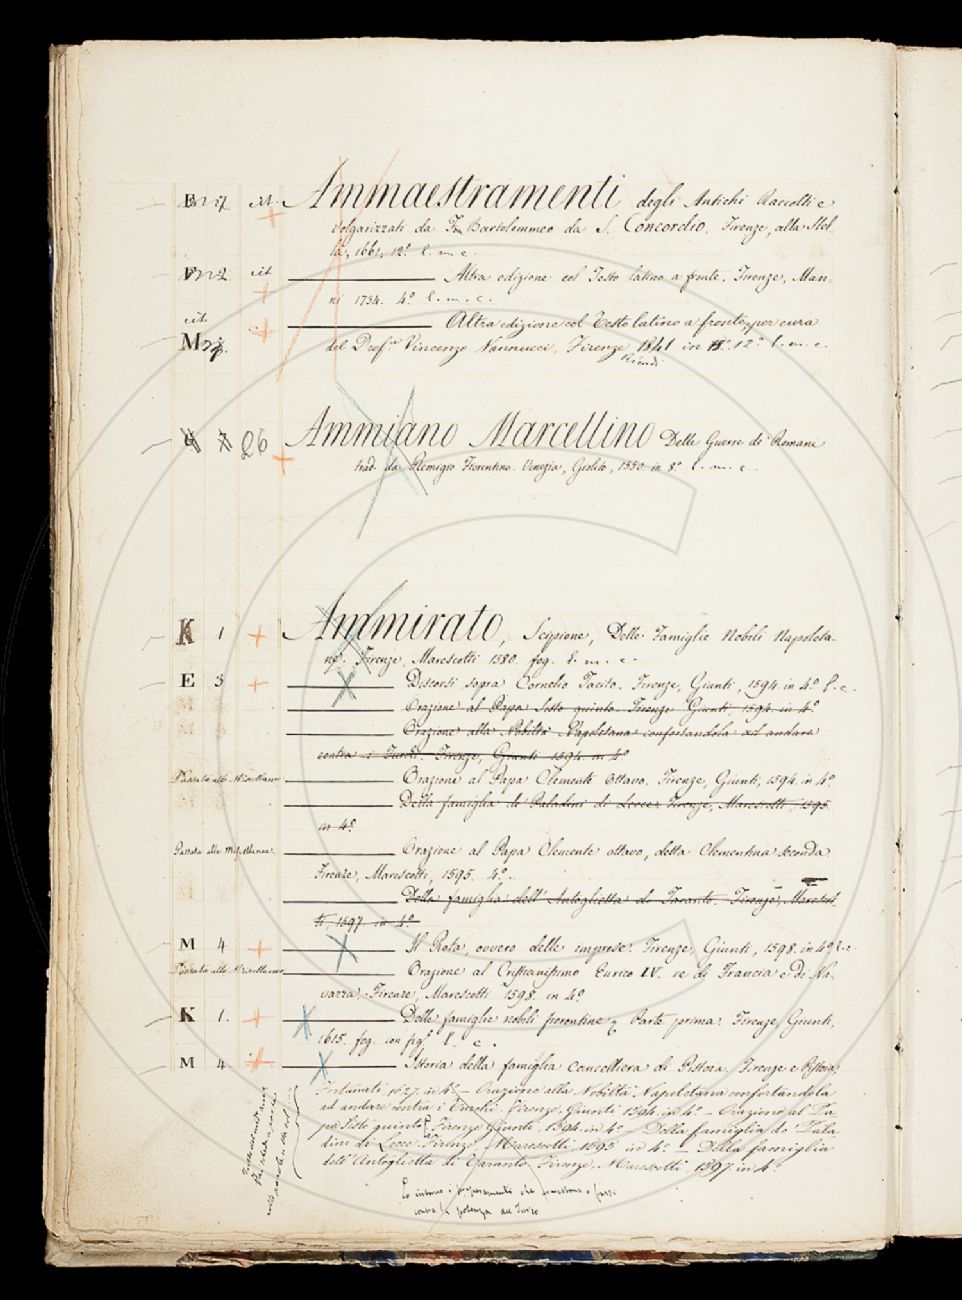 Ammaestramenti degli Antichi Raccolti e
volgarizzati da Fra Bartolommeo da S. Concordio. Firenze, alla Stel-
la, 1661, 12.° l. m. c.
cit ——— Altra edizione col Testo latino a fronte. Firenze, Man-
ni 1734. 4.° l. m. c.
cit. ——— Altra edizione col Testo latino a fronte, per cura
M del Prof.re Vincenzo Nannucci. Firenze, 1841 in 12.° l. m. c.
Ricordi
26 Ammiano Marcellino Delle Guerre de Romani
trad. da Remigio Fiorentino. Venezia, Giolito, 1550 in 8.° l. m. c.
K 1 + Ammirato, Scipione, Delle Famiglie Nobili Napoleta-
ne. Firenze, Marescotti 1580. fog. l. m. c.
E 3 + ——— Discorsi sopra Cornelio Tacito. Firenze, Giunti, 1594. in 4.° l. c.
——— Orazione al Papa Sisto quinto. Firenze Giunti 1594. in 4.°
——— Orazione alla Nobiltà Napoletana confortandola ad andare
contra i Turchi. Firenze, Giunti 1594. in 4.°
Passata alle Miscellanee ——— Orazione al Papa Clemente Ottavo. Firenze, Giunti, 1594. in 4.°
——— Della famiglia de Paladini di Lecce. Firenze, Marescotti, 1595.
in 4.°
Passata alle Miscellanee ——— Orazione al Papa Clemente ottavo, detta Clementina seconda.
Firenze, Marescotti, 1595. 4.°
——— Della famiglia dell' Antoglietta di Taranto. Firenze, Marescot-
ti, 1597. in 4.°
M 4 + ——— Il Rota, ovvero delle imprese. Firenze, Giunti, 1598. in 4.° l. c.
Passata alle Miscellanee ——— Orazione al Cristianissimo Enrico IV. re di Francia e di Na-
varra. Firenze, Marescotti 1598. in 4.°
K 1. + ——— Delle famiglie nobili fiorentine Parte prima. Firenze, Giunti,
1615. fog. con fig.e l. c.
M 4 + ——— Istoria della famiglia Cancelliera di Pistoia. Firenze e Pistoia,
Fortunati 1627. in 4.° — Orazione alla Nobiltà Napoletana confortandola
ad andare contra i Turchi. Firenze Giunti 1594. in 4.° — Orazione al Pa-
pa Sisto quinto Firenze Giunti 1594. in 4.° — Della famiglia de' Pala-
dini di Lecce. Firenze, Marescotti 1595 in 4.° — Della famiglia
dell'Antoglietta di Taranto. Firenze. Marescotti, 1597. in 4.°
intorno i preparamenti che
contro la potenza del Turco